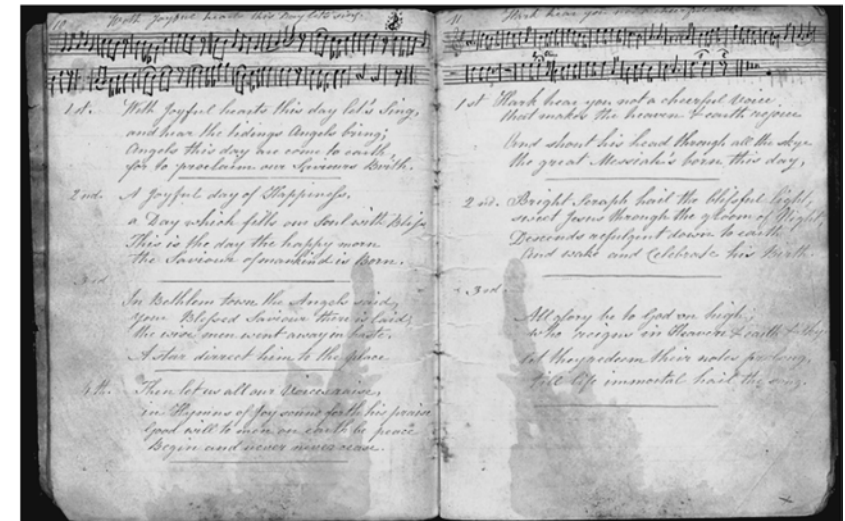 10 With Joyful hearts this Day lets sing.
1st. With Joyful hearts this day let's Sing,
and hear the tidings Angels bring;
Angels this day are come to earth,
for to proclaim our Saviours Birth.
2nd. A Joyful day of Happiness,
a Day which fills our Soul with Bliss
This is the day the happy morn
the Saviour of mankind is Born.
3rd
In Bethlem town the Angels said,
Your Blessed Saviour there is laid;
the wise men went away in haste,
A Star dirrect him to the place
4th. Then let us all our Voices raise,
in Hymns of Joy sound forth his praise
Good will to men on earth be peace
Begin and never never cease.
11 Hark hear you not a cheerful
1st Hark hear you not a cheerful Voice
that makes the heaven & earth rejoice
And shout his head through all the skye
the great Messiah's born this day,
2nd. Bright Seraph hail the blissful light,
sweet Jesus through the gloom of Night,
Descends refulgent down to earth
And wake and Celebrate his Birth.
3rd.
All glory be to God on high;
who reigns in Heaven & earth &
let they their notes prolong,
till life immortal hail the song.